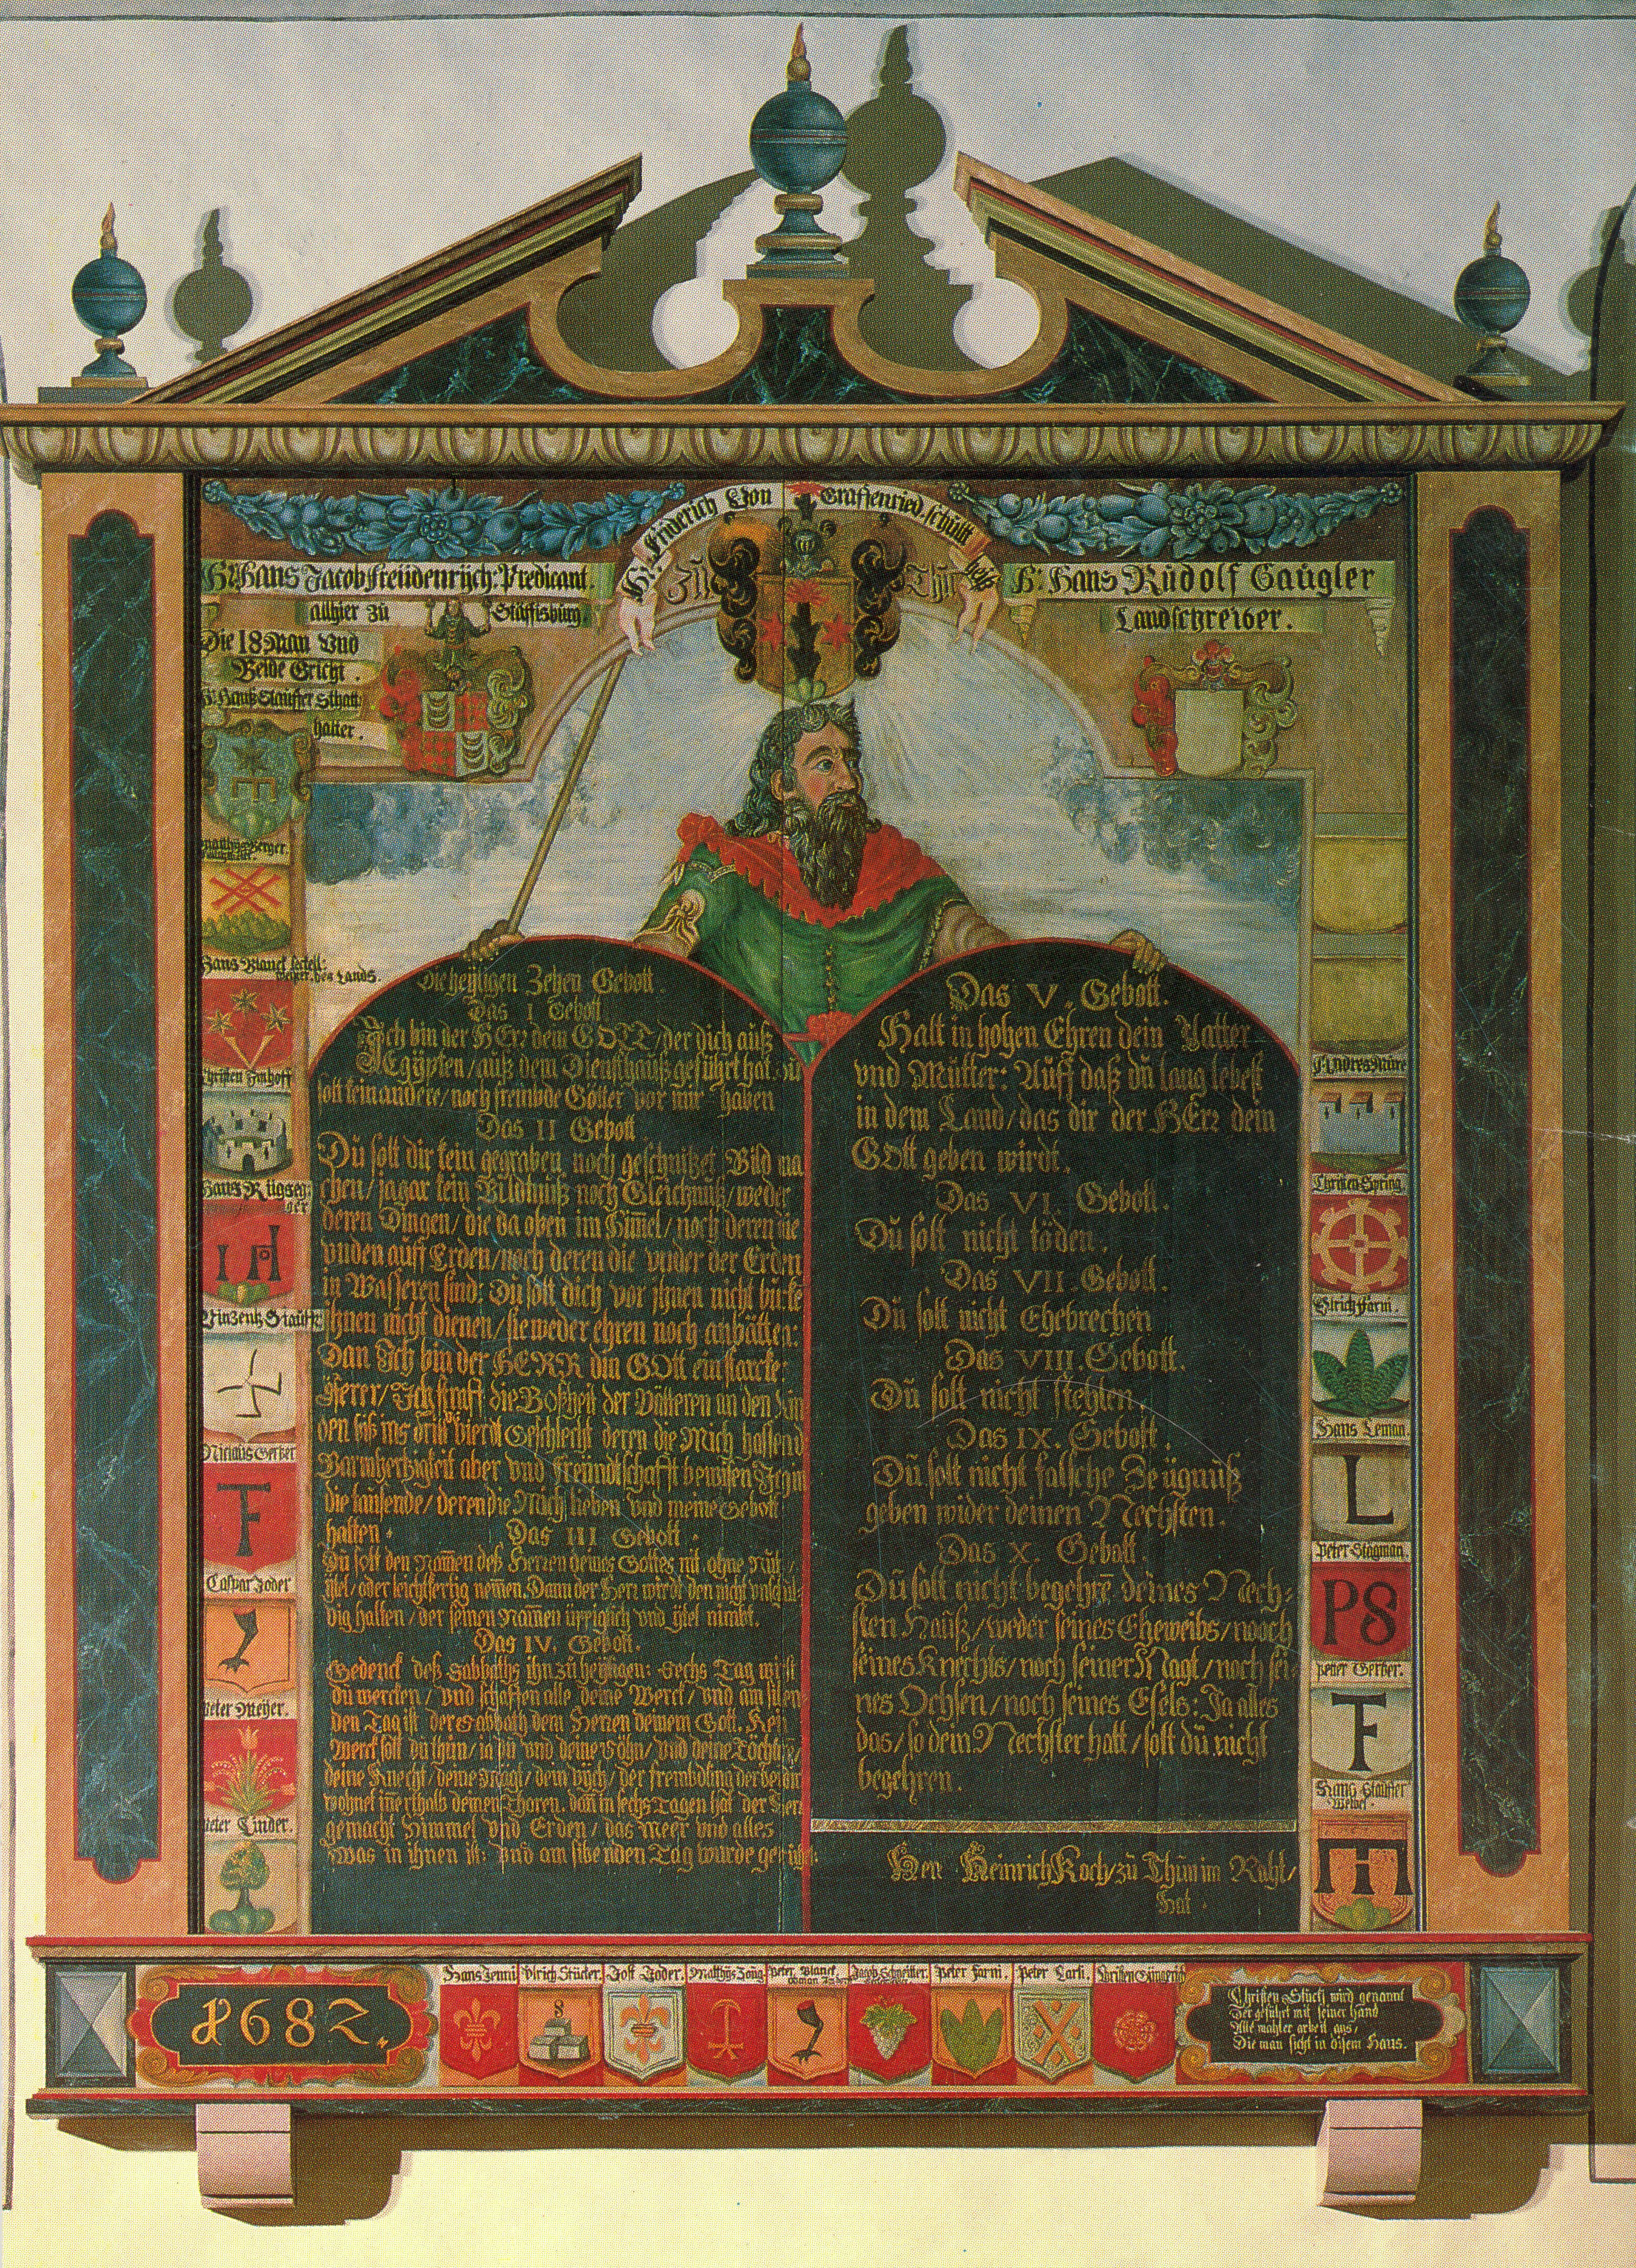 Hr. Friderich Von Graffenried, schultheiß
Zu Thun
Hr. Hans Jacob freudenrÿch: Predicant.
alhier zu Stäffisburg.
Die 18 Man Vnd
Beide Gricht.
Hr. Hans Rudolf Gaugler
Landschreiber.
Hans Blanck
des Lands.
Christen Imhoff
Hans Rügseg:
ger
Niclaus Gerber
Caspar Joder
Peter Meÿer.
Peter Linder.
Christen Spring
Vlrich Farni.
Hans Leman.
L
Peter Stagman.
PS
Peter Gerber.
F
Hans Stauffer
Weibel.
Die heÿligen Zehen Gebott.
Das I Gebott.
Ich bin der HErr dein GOTT/der dich auß
Egÿpten/auß dem Diensthauß geführt hat. du
solt kein andere/noch frembde Götter vor mir haben
Das II Gebott
Du solt dir kein gegraben, noch geschnitzet Bild ma
chen/ja gar kein Bildnuß noch Gleichnuß/weder
deren Dingen/die da oben im Himel/noch deren die
vnden auff Erden/noch deren die vnder der Erden
in Wasseren sind: Du solt dich vor ihnen nicht bucke
ihnen nicht dienen/sie weder ehren noch anbätten:
Dan Ich bin der HERR din GOtt ein starcke:
Eÿferer/Ich straff die Boßheit der Vätteren an den Kin
den biß ins dritt vierdt Geschlecht deren die Mich hassend
Barmhertzigkeit aber vnd freündtschafft bewisen Ich in
die tausende/deren die Mich lieben vnd meine Gebott
halten.
Das III Gebott.
Du solt den Namen deß Herren deines Gottes nit ohne
ÿtel/oder leichtfertig nemen. Dann der Herr wirdt den nicht vnschul
dig halten/der seinen Namen üppiglich vnd ÿtel nimbt.
Das IV. Gebott.
Gedenck deß Sabbaths ihn zu heÿligen: Sechs Tag wirst
du wercken/vnd schaffen alle deine Werck/vnd am siben
den Tag ist der Sabbath dem Herren deinem Gott. Kein
Werck solt du thun/ia du vnd deine Söhn/vnd deine Töchter/
deine Knecht/deine Mägt/dein Vÿch/der frembdling der beÿ dir
wohnet innerthalb deinen Thoren. dan in sechs Tagen hat der Herr
gemacht Himmel vnd Erden/das Meer vnd alles
was in ihnen ist: vnd am sibenden Tag
Das V. Gebott.
Halt in hohen Ehren dein Vatter
vnd Mutter: Auff daß du lang lebest
in dem Land/das dir der HErr dein
GOtt geben wirdt.
Das VI. Gebott.
Du solt nicht töden.
Das VII. Gebott.
Du solt nicht Ehebrechen
Das VIII. Gebott.
Du solt nicht stehlen.
Das IX. Gebott.
Du solt nicht falsche Zeügnuß
geben wider deinen Nechsten.
Das X. Gebott.
Du solt nicht begehrē deines Nech=
sten Hauß/weder seines Eheweibs/nooch
seines Knechts/noch seiner Magt/noch sei
nes Ochsen/noch seines Esels: Ja alles
das/so dein Nechster hatt/solt du nicht
begehren.
Herr Heinrich Koch/zu Thun im Raht/
Hat.
1682
Hans Jenni
Vlrich Studer.
Jost Joder.
Matthÿs Zoug
Peter Blanck
Jacob Schneitter.
Peter Farni.
Peter Carli.
Christen Güngerich
Christen Stucki wird genannt
Der geführt mit seiner hand
Alle mahler arbeit aus/
Die man sicht in disem Haus.